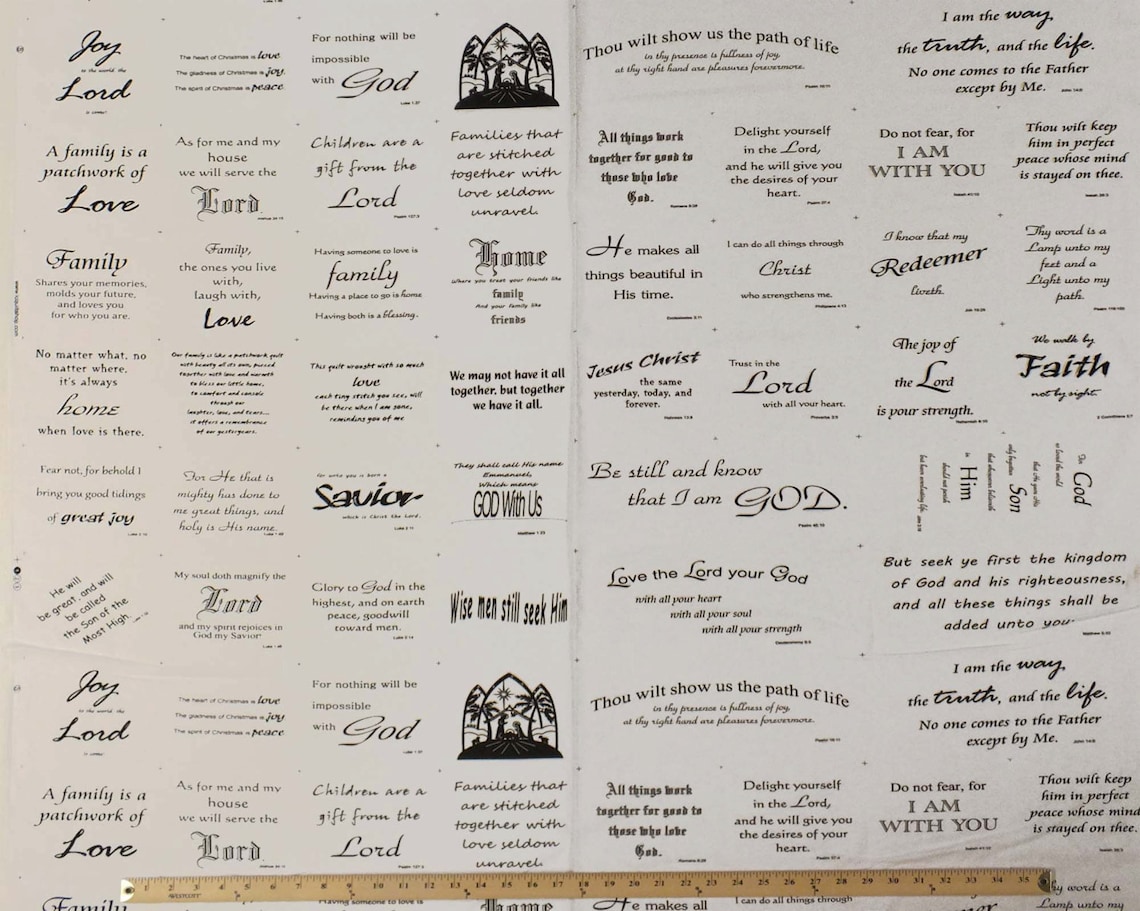 Joy
to the world the
Lord
is come!
The heart of Christmas is love
The gladness of Christmas is joy
The spirit of Christmas is peace
For nothing will be
impossible
with God
Luke 1:37
Thou wilt show us the path of life
in thy presence is fullness of joy,
at thy right hand are pleasures forevermore.
Psalm 16:11
I am the way,
the truth, and the life.
No one comes to the Father
except by Me. John 14:6
A family is a
patchwork of
Love
As for me and my
house
we will serve the
Lord
Joshua 24:15
Children are a
gift from the
Lord
Psalm 127:3
Families that
are stitched
together with
love seldom
unravel.
All things work
together for good to
those who love
God.
Romans 8:28
Delight yourself
in the Lord,
and he will give you
the desires of your
heart.
Psalm 37:4
Do not fear, for
I AM
WITH YOU
Isaiah 41:10
Thou wilt keep
him in perfect
peace whose mind
is stayed on thee.
Isaiah 26:3
Family
Shares your memories,
molds your future,
and loves you
for who you are.
Family,
the ones you live
with,
laugh with,
Love
Having someone to love is
family
Having a place to go is home
Having both is a blessing.
Home
Where you treat your friends like
family
And your family like
friends
He makes all
things beautiful in
His time.
Ecclesiastes 3:11
I can do all things through
Christ
who strengthens me.
Philippians 4:13
I know that my
Redeemer
liveth.
Job 19:25
Thy word is a
Lamp unto my
feet and a
Light unto my
path.
Psalm 119:105
No matter what, no
matter where,
it's always
home
when love is there.
Our family is like a patchwork quilt
with beauty all its own, pieced
together with love and warmth
to bless our little home,
to comfort and console
through our
laughter, love, and tears...
it offers a remembrance
of our yesteryears.
This quilt wrought with so much
love
each tiny stitch you see, will
be there when I am gone,
reminding you of me
We may not have it all
together, but together
we have it all.
Jesus Christ
the same
yesterday, today, and
forever.
Hebrews 13:8
Trust in the
Lord
with all your heart.
Proverbs 3:5
The joy of
the Lord
is your strength.
Nehemiah 8:10
We walk by
Faith
not by sight.
2 Corinthians 5:7
Fear not, for behold I
bring you good tidings
of great joy
Luke 2:10
For He that is
mighty has done to
me great things, and
holy is His name.
Luke 1:49
for unto you is born a
Savior
which is Christ the Lord.
Luke 2:11
They shall call His name
Emmanuel,
Which means
GOD With Us
Matthew 1:23
Be still and know
that I am GOD.
Psalm 46:10
For God
so loved the world
that He gave His
only begotten Son
that whosoever believeth
in Him
should not perish
but have everlasting life. John 3:16
He will
be great, and will
be called
the Son of the
Most High
My soul doth magnify the
Lord
and my spirit rejoices in
God my Savior
Luke 1:46
Glory to God in the
highest, and on earth
peace, goodwill
toward men.
Luke 2:14
Wise men still seek Him
Love the Lord your God
with all your heart
with all your soul
with all your strength
Deuteronomy 6:5
But seek ye first the kingdom
of God and his righteousness,
and all these things shall be
added unto you.
Matthew 6:33
Joy
to the world the
Lord
is come!
The heart of Christmas is love
The gladness of Christmas is joy
The spirit of Christmas is peace
For nothing will be
impossible
with God
Luke 1:37
Thou wilt show us the path of life
in thy presence is fullness of joy,
at thy right hand are pleasures forevermore.
Psalm 16:11
I am the way,
the truth, and the life.
No one comes to the Father
except by Me. John 14:6
A family is a
patchwork of
Love
As for me and my
house
we will serve the
Lord
Joshua 24:15
Children are a
gift from the
Lord
Psalm 127:3
Families that
are stitched
together with
love seldom
unravel.
All things work
together for good to
those who love
God.
Romans 8:28
Delight yourself
in the Lord,
and he will give you
the desires of your
heart.
Psalm 37:4
Do not fear, for
I AM
WITH YOU
Isaiah 41:10
Thou wilt keep
him in perfect
peace whose mind
is stayed on thee.
Isaiah 26:3
1 2 3 4 5 6 7 8 9 10 11 12 13 14 15 16 17 18 19 20 21 22 23 24 25 26 27 28 29 30 31 32 33 34 35
WESTCOTT
Family
Home
He makes all
I can do all things through
Thy word is a
Lamp unto my